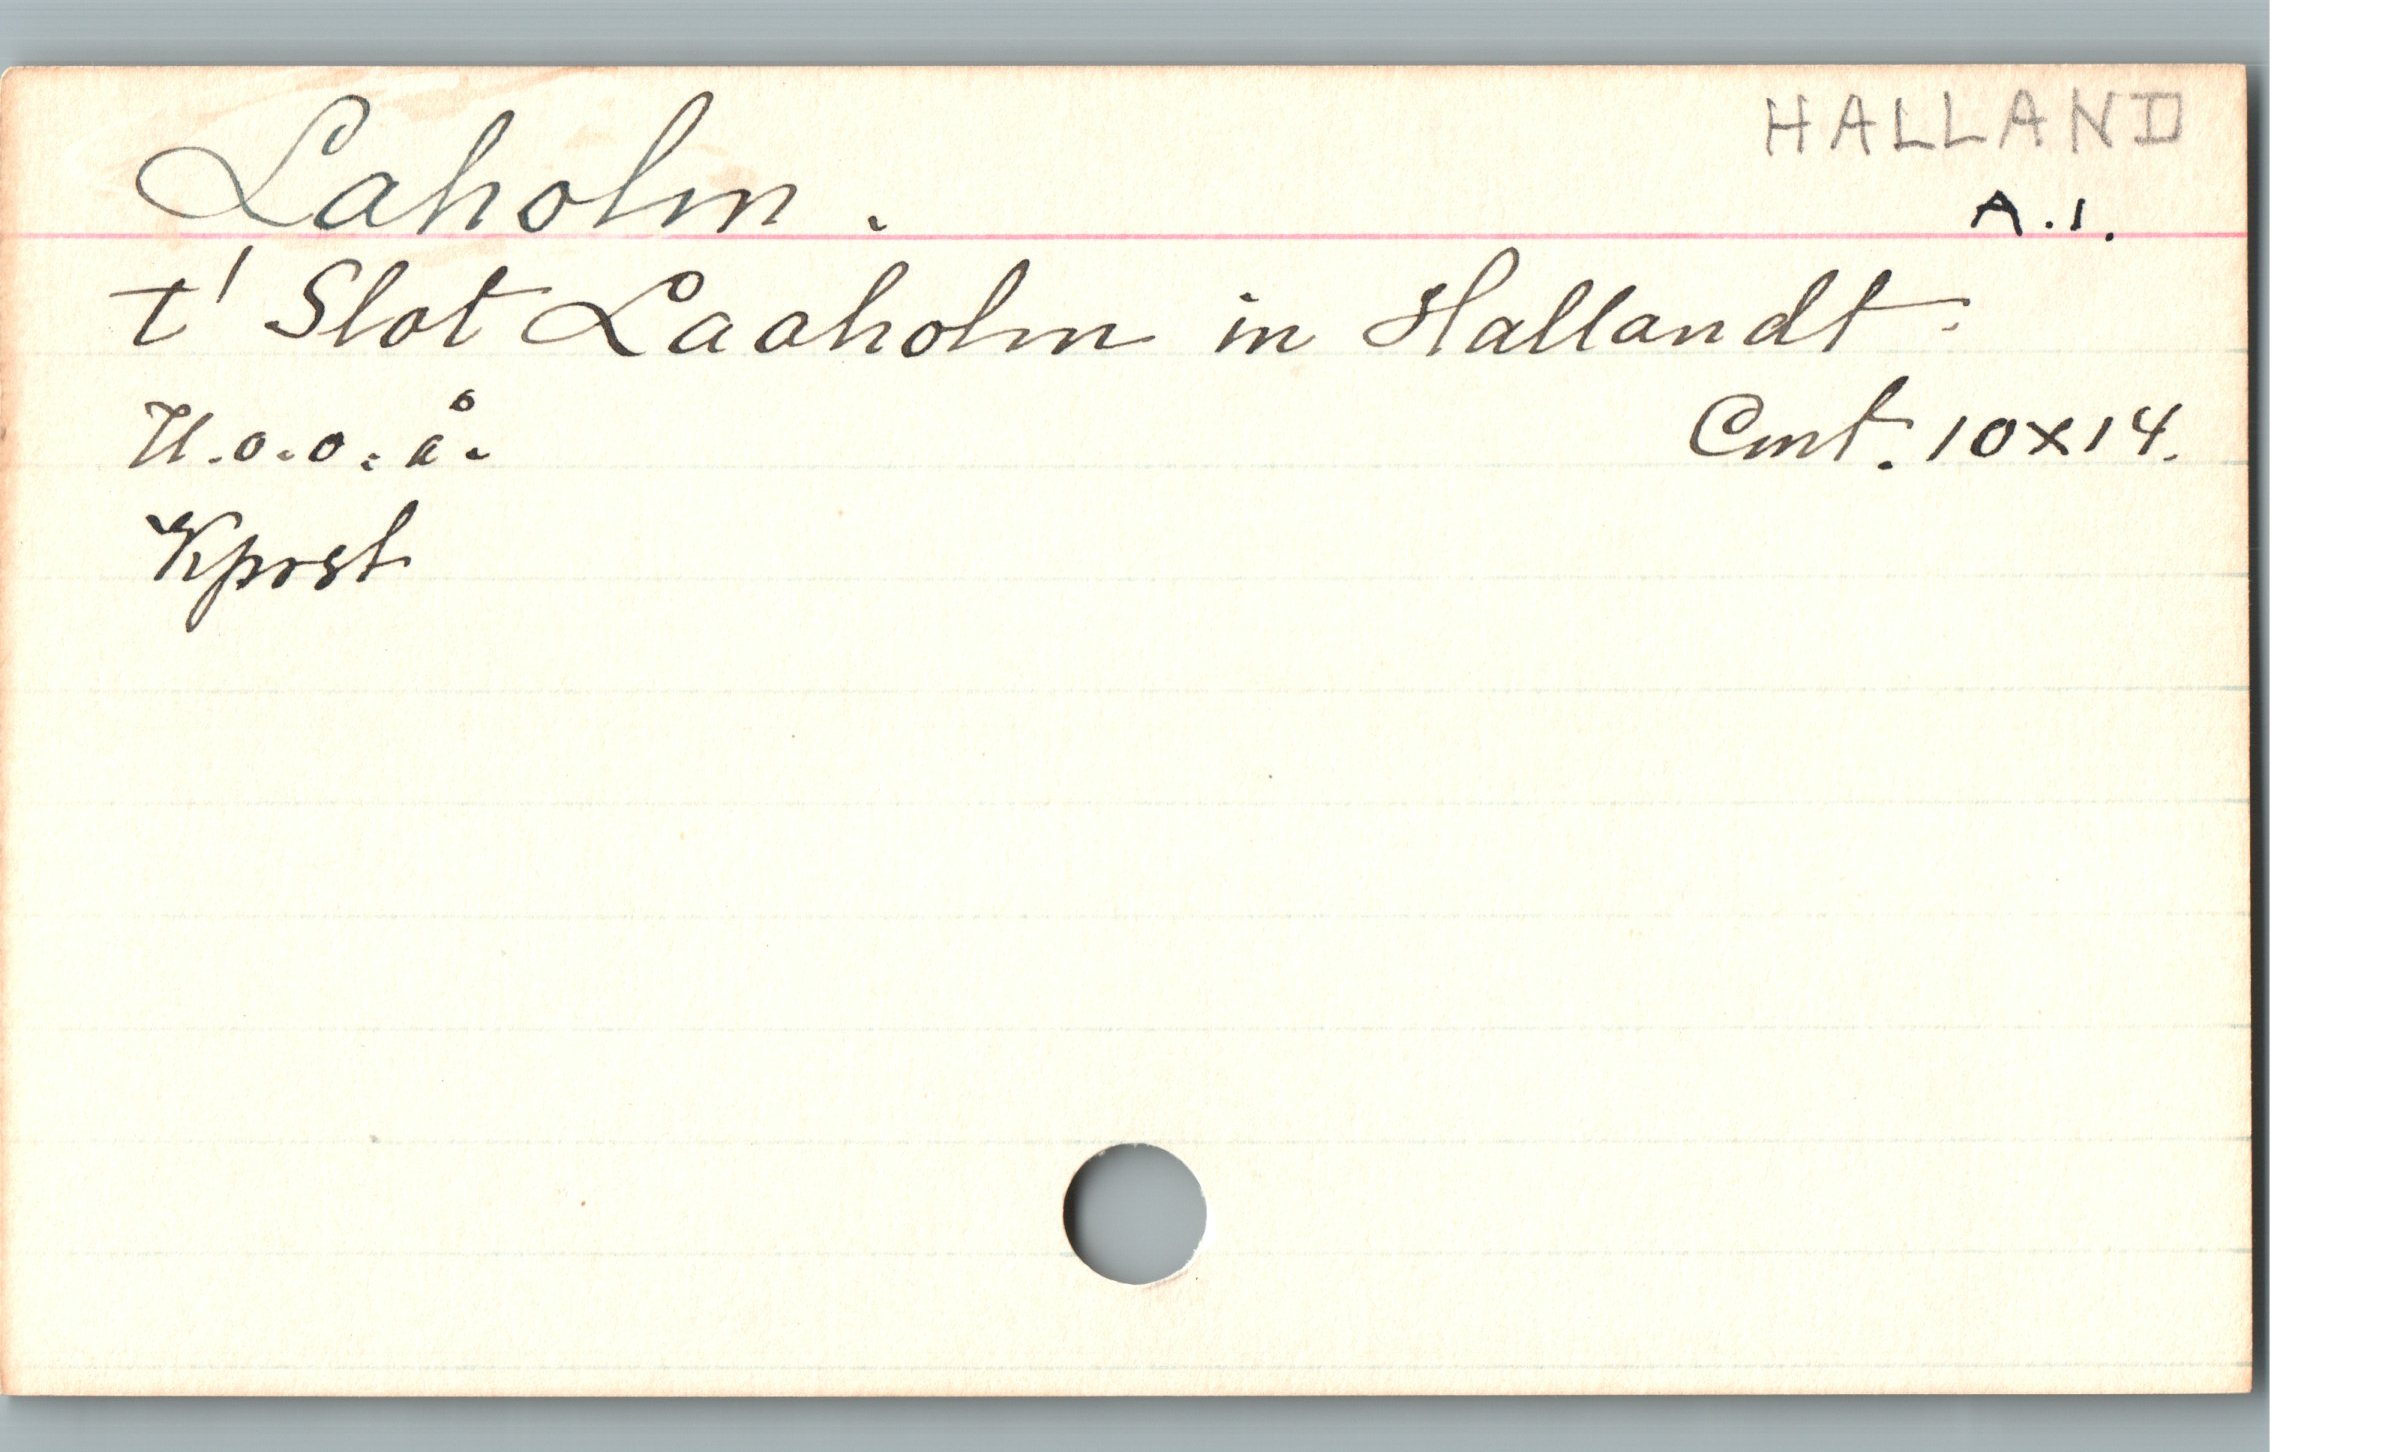 HALLAND
Laholm.
A.1.
t' Slot Laaholm in Hallandt.
U.o.o.å.
Cmt. 10x14.
Kprst